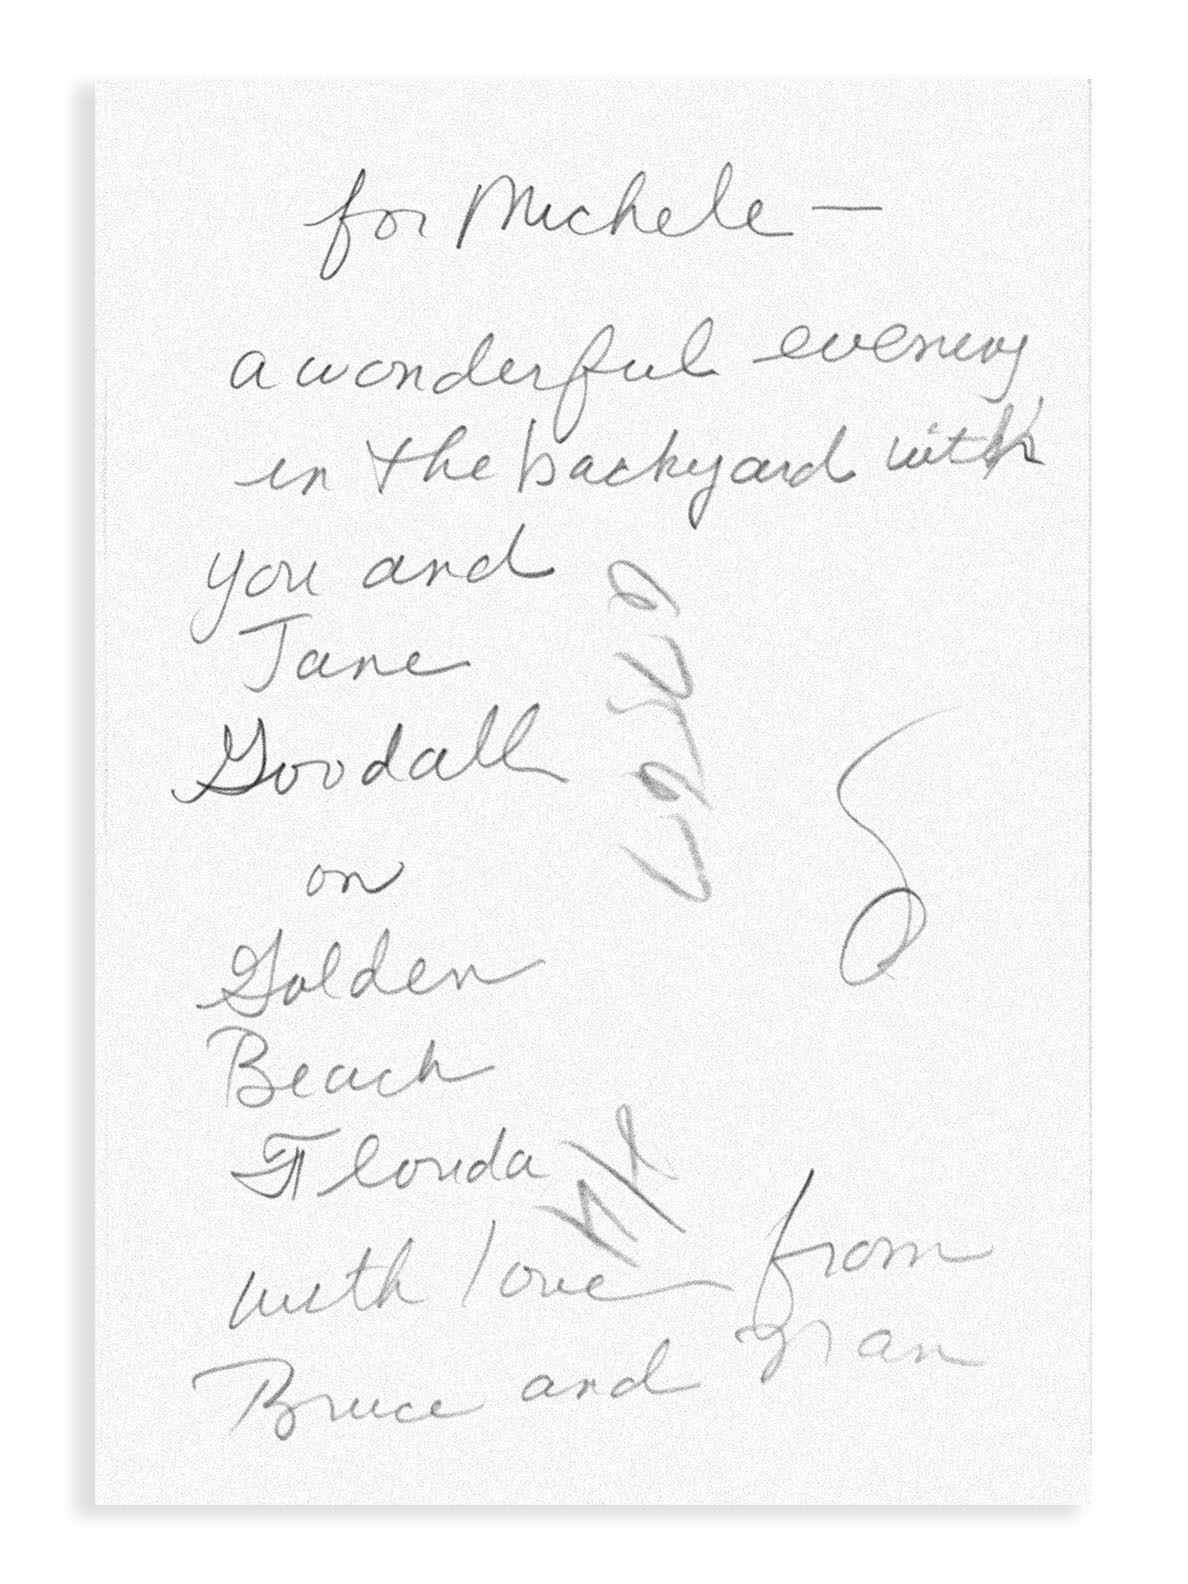 for Michele —
a wonderful evening
in the backyard with
you and
Jane
Goodall
on
Golden
Beach
Florida
with love from
Bruce and Fran